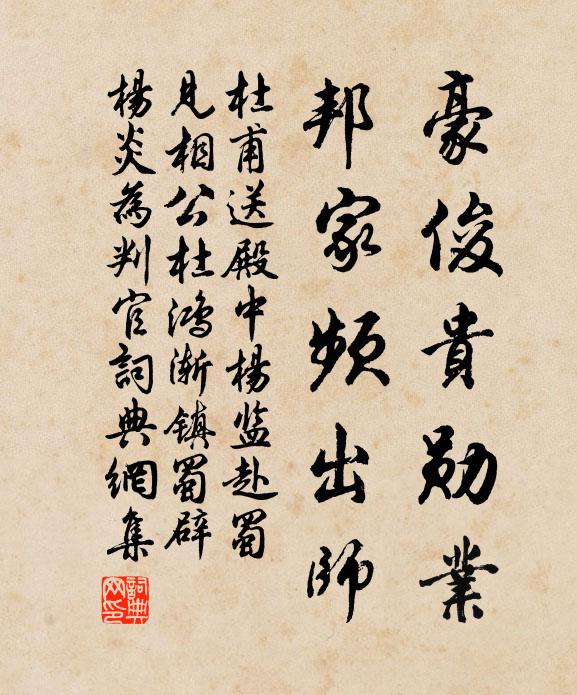 豪俊貴勋業
邦家頻出師
杜甫送殿中楊监赴蜀
見相公杜鴻漸鎮蜀辟
楊炎為判官詞典網集
詞典网印